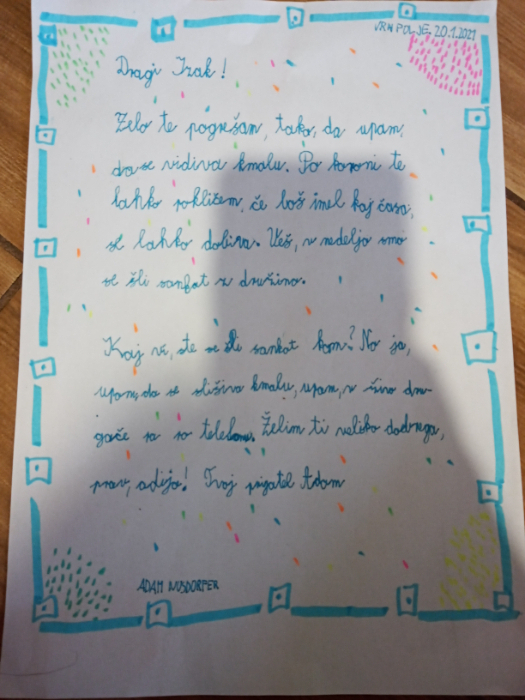 VRH POLJE, 20.1.2021
Dragi Izak!
Zelo te pogrešam, tako, da upam,
da se vidiva kmalu. Po koroni te
lahko pokličem, če boš imel kaj časa,
se lahko dobiva. Veš, v nedeljo smo
se šli sankat z družino.
Kaj vi, ste se šli sankat kam? No ja,
upam, da se slišiva kmalu, upam, v živo dru-
gače pa po telefonu. Želim ti veliko dobrega,
prav, adijo! Tvoj prijatel Adam
ADAM